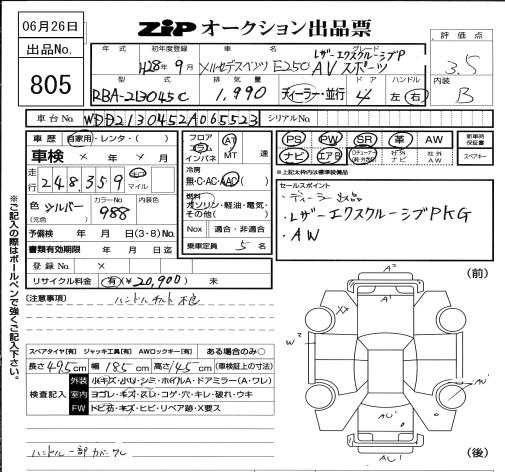 06月26日
出品No.
805
ZiP オークション出品票
評価点
3.5
内装
B
年式 初年度登録 車名 グレード
H28年9月 メルセデスベンツ E250 レザーエクスクルーシブP
AV スポーツ
型式 排気量 ドア ハンドル
RBA-213045C 1,990 ディーラー・並行 4 左 右
車台No. WDD2130452A065523 シリアルNo.
車歴 自家用・レンタ・( )
車検 × 年 × 月
走行 248,359 キロ マイル
色 シルバー (元色) カラーNo. 988 内装色
予備検 年 月 日(3・8)No.
書類有効期限 年 月 日迄
登録No. ×
リサイクル料金 有(¥20,900) 未
フロア コラム インパネ AT MT 速
冷房 無・C・AC・AAC
燃料 ガソリン・軽油・電気・その他( )
Nox 適合・非適合
乗車定員 5 名
PS PW SR 革 AW
ナビ エアB 社外ナビ 社外AW
新車時保証書
スペアキー
※上記太枠内は標準装備
セールスポイント
・ディーラー出品
・レザーエクスクルーシブPKG
・AW
※ご記入の際はボールペンで強くご記入下さい。
(注意事項) ハンドルチルト不良
スペアタイヤ[有] ジャッキ工具[有] AWロックキー[有] ある場合のみ○
長さ495cm 幅185cm 高さ145cm (車検証上の寸法)
検査記入
外装 小キズ・小ヘコ・シミ・ホイルA・ドアミラー(A・ワレ)
室内 ヨゴレ・キズ・スレ・コゲ・穴・キレ・破れ・ウキ
FW トビ石・キズ・ヒビ・リペア跡・X要ス
ハンドル一部カバーワレ
(前)
A²
A¹
XX
W²
AW
AU¹
AU¹
(後)